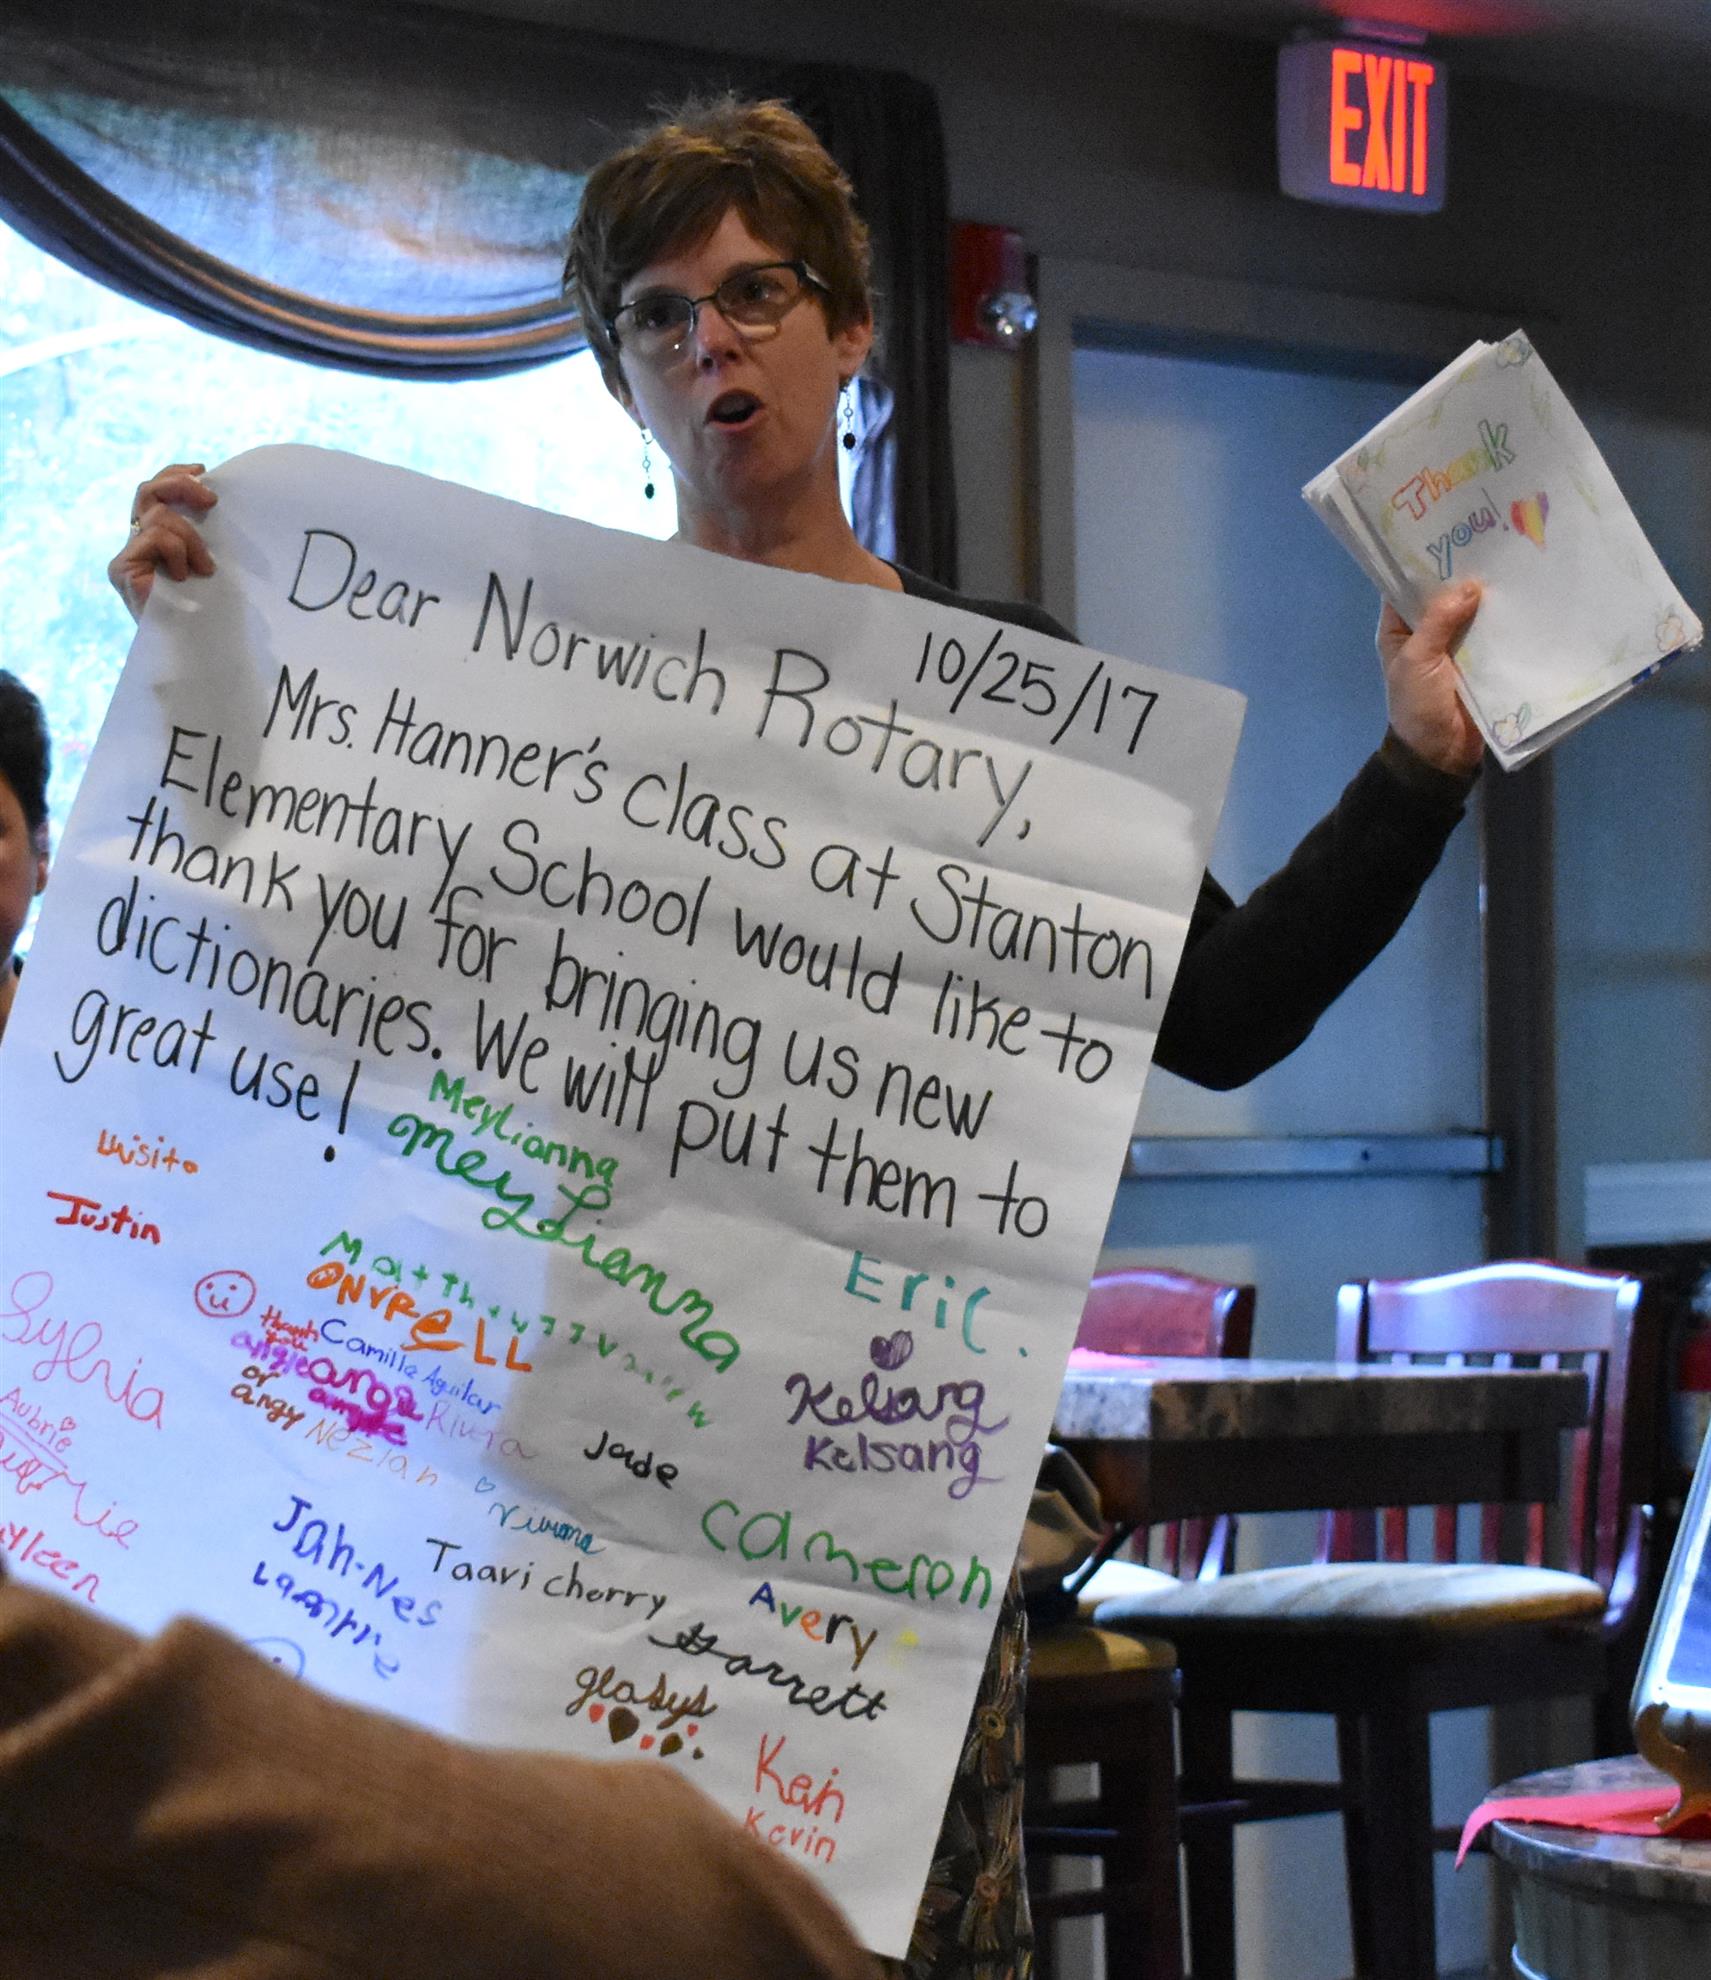 EXIT
Thank
you!
10/25/17
Dear Norwich Rotary,
Mrs. Hanner's class at Stanton
Elementary School would like to
thank you for bringing us new
dictionaries. We will put them to
great use!
Meylianna
MeyLianna
Luisito
Justin
Eric.
Matthew
thank
you
Camille Aguilar
Rivera
or
angy
Neziah
Jade
Kelsang
Kelsang
Sylvia
Aubrie
Cameron
Jah-Nes
Taavi cherry
Avery
Garrett
gladys
Kevin